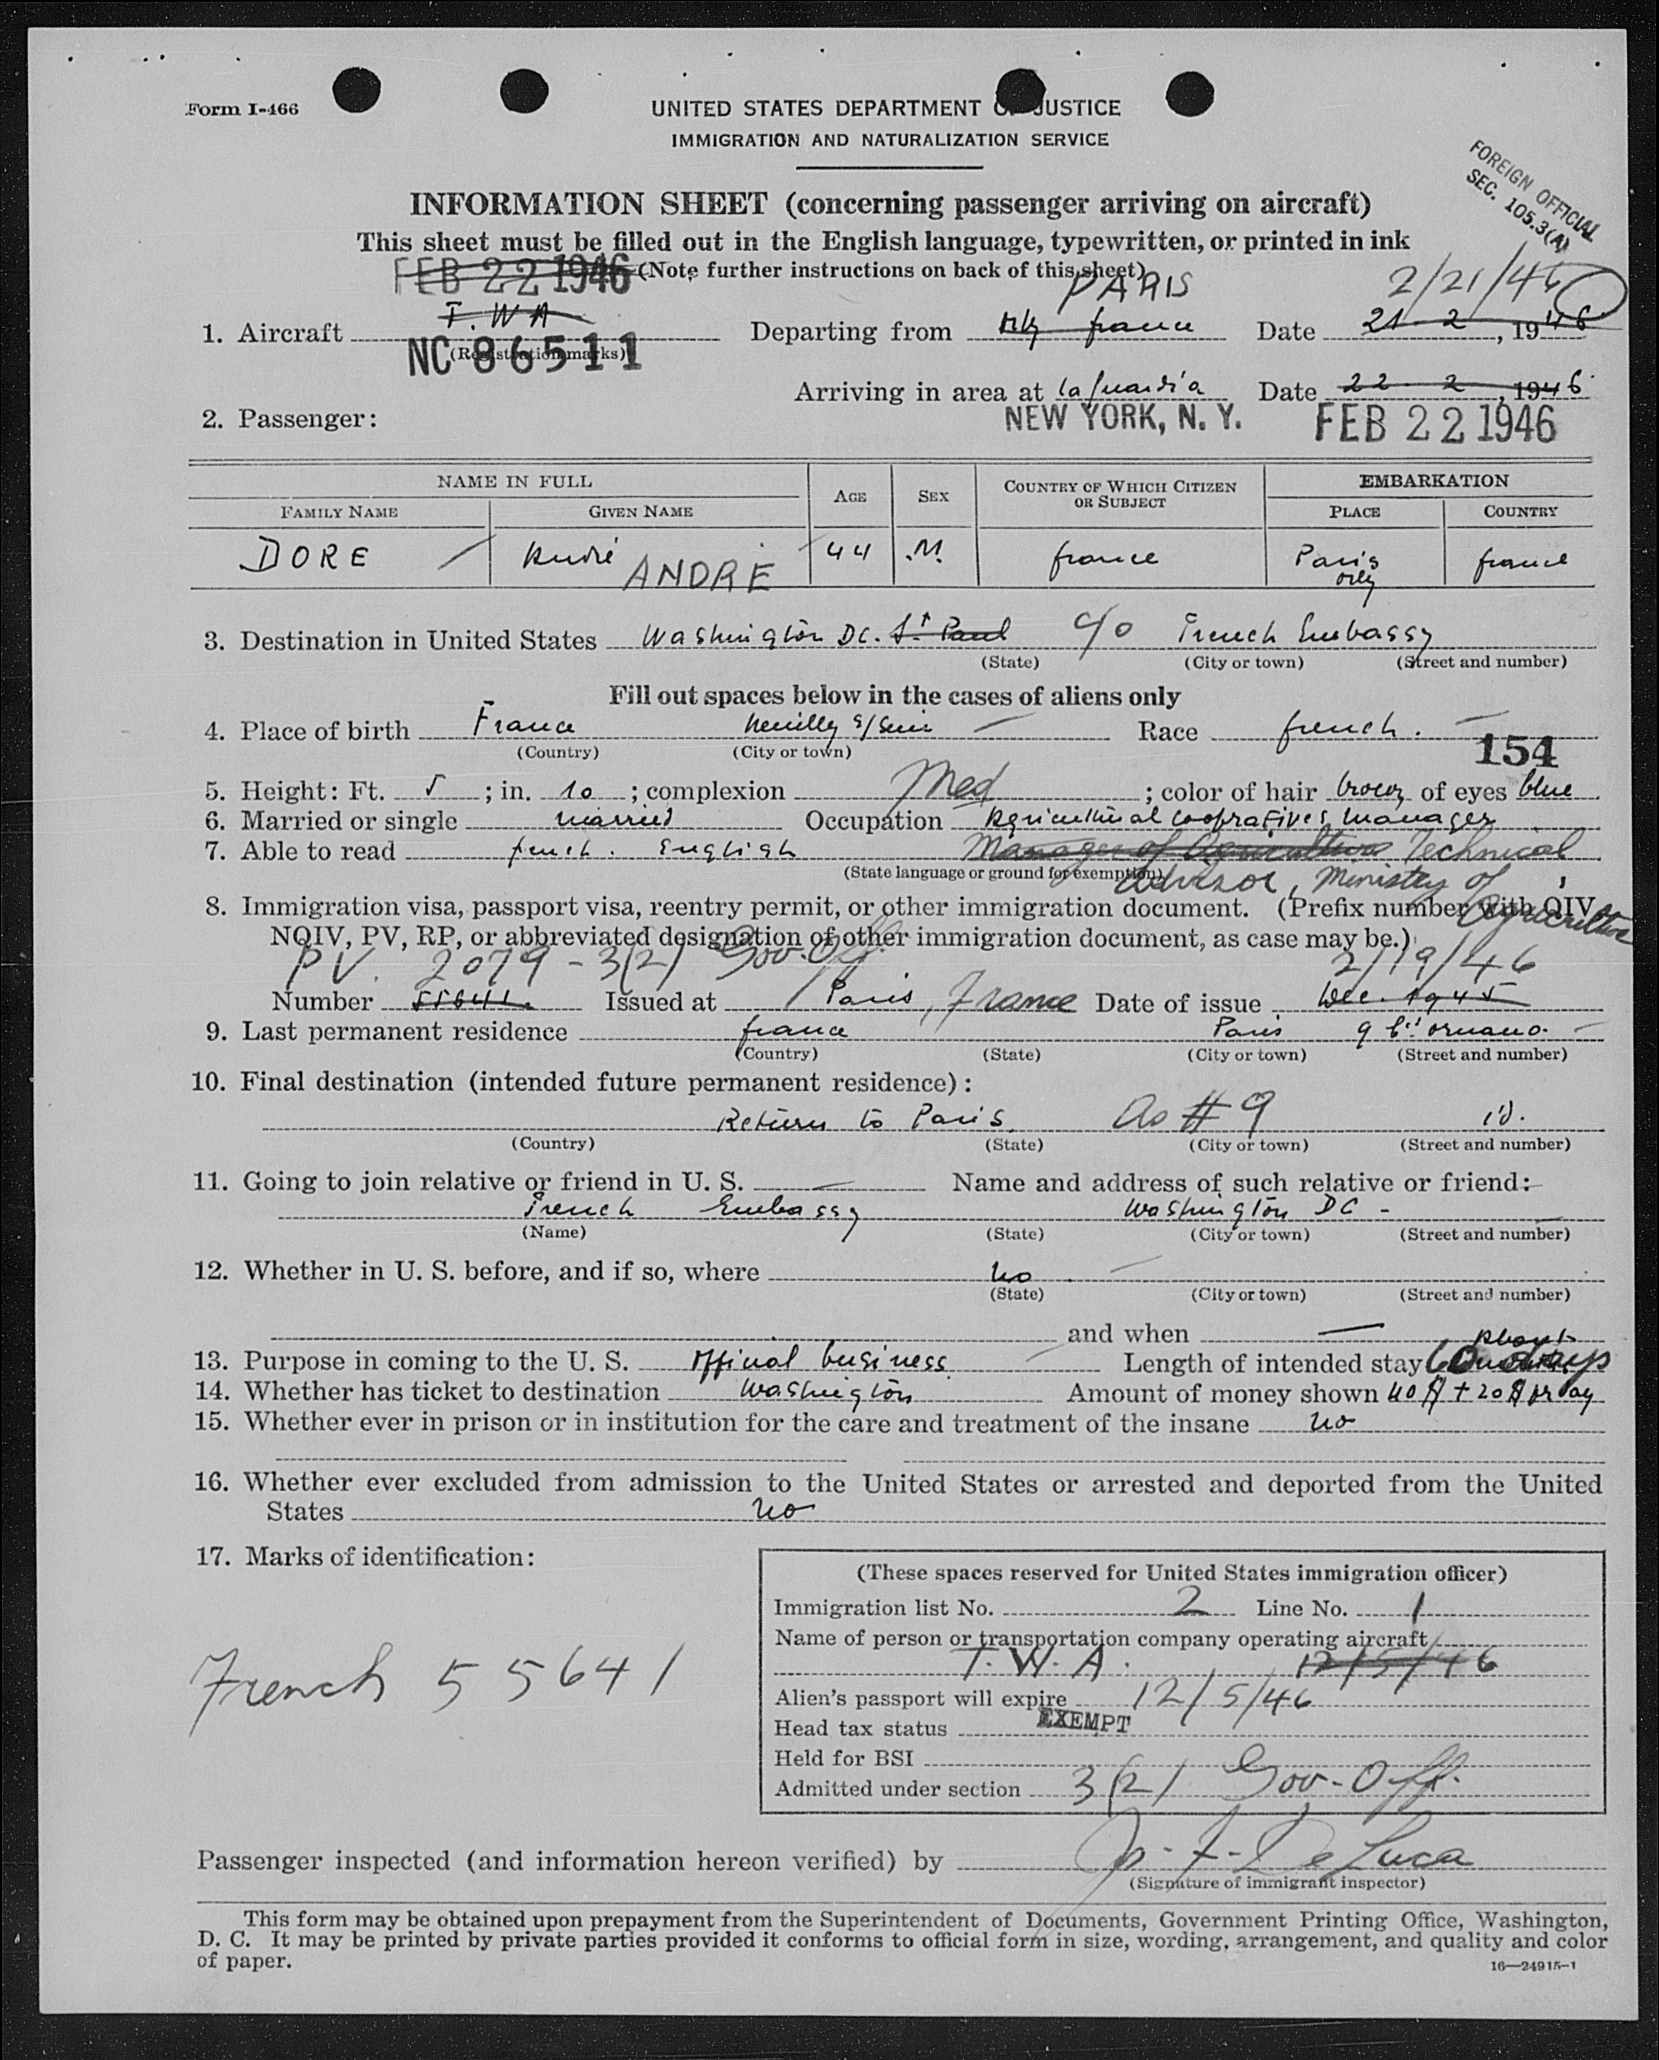 Form I-466
UNITED STATES DEPARTMENT OF JUSTICE
IMMIGRATION AND NATURALIZATION SERVICE
FOREIGN OFFICIAL
SEC. 105.3(A)
INFORMATION SHEET (concerning passenger arriving on aircraft)
This sheet must be filled out in the English language, typewritten, or printed in ink
FEB 22 1946 (Note further instructions on back of this sheet)
PARIS 2/21/46
1. Aircraft T.W.A Departing from Orly france Date 21 - 2, 1946
(Registration marks)
NC 86511
Arriving in area at laGuardia Date 22 - 2, 1946
NEW YORK, N. Y. FEB 22 1946
2. Passenger:
NAME IN FULL AGE SEX COUNTRY OF WHICH CITIZEN OR SUBJECT EMBARKATION
FAMILY NAME GIVEN NAME PLACE COUNTRY
DORE André ANDRE 44 M. france Paris orly france
3. Destination in United States Washington DC. St Paul c/o French Embassy
(State) (City or town) (Street and number)
Fill out spaces below in the cases of aliens only
4. Place of birth France Neuilly s/Seine Race french.
(Country) (City or town)
154
5. Height: Ft. 5; in. 10; complexion Med; color of hair brown of eyes blue
6. Married or single married Occupation Agricultural cooprafives manager
7. Able to read french. English Manager of Agriculture Technical
(State language or ground for exemption)
Advisor, Ministry of Agriculture
8. Immigration visa, passport visa, reentry permit, or other immigration document. (Prefix number with QIV,
NQIV, PV, RP, or abbreviated designation of other immigration document, as case may be.)
PV. 2079 - 3(2) Gov. Off. 2/19/46
Number 55641. Issued at Paris, France Date of issue Dec. 1945
9. Last permanent residence france Paris 9 Bd ornano.
(Country) (State) (City or town) (Street and number)
10. Final destination (intended future permanent residence):
Return to Paris. As # 9 id.
(Country) (State) (City or town) (Street and number)
11. Going to join relative or friend in U. S. — Name and address of such relative or friend:
French Embassy Washington DC -
(Name) (State) (City or town) (Street and number)
12. Whether in U. S. before, and if so, where no
(State) (City or town) (Street and number)
and when —
about
13. Purpose in coming to the U. S. official business Length of intended stay 60 days
14. Whether has ticket to destination Washington Amount of money shown 40 $ + 20 $ pr day
15. Whether ever in prison or in institution for the care and treatment of the insane no
16. Whether ever excluded from admission to the United States or arrested and deported from the United
States no
17. Marks of identification:
French 55641
(These spaces reserved for United States immigration officer)
Immigration list No. 2 Line No. 1
Name of person or transportation company operating aircraft
T. W. A. 12/5/46
Alien's passport will expire 12/5/46
Head tax status EXEMPT
Held for BSI
Admitted under section 3(2) Gov-Off.
Passenger inspected (and information hereon verified) by F. DeLuca
(Signature of immigrant inspector)
This form may be obtained upon prepayment from the Superintendent of Documents, Government Printing Office, Washington,
D. C. It may be printed by private parties provided it conforms to official form in size, wording, arrangement, and quality and color
of paper.
16—24915-1